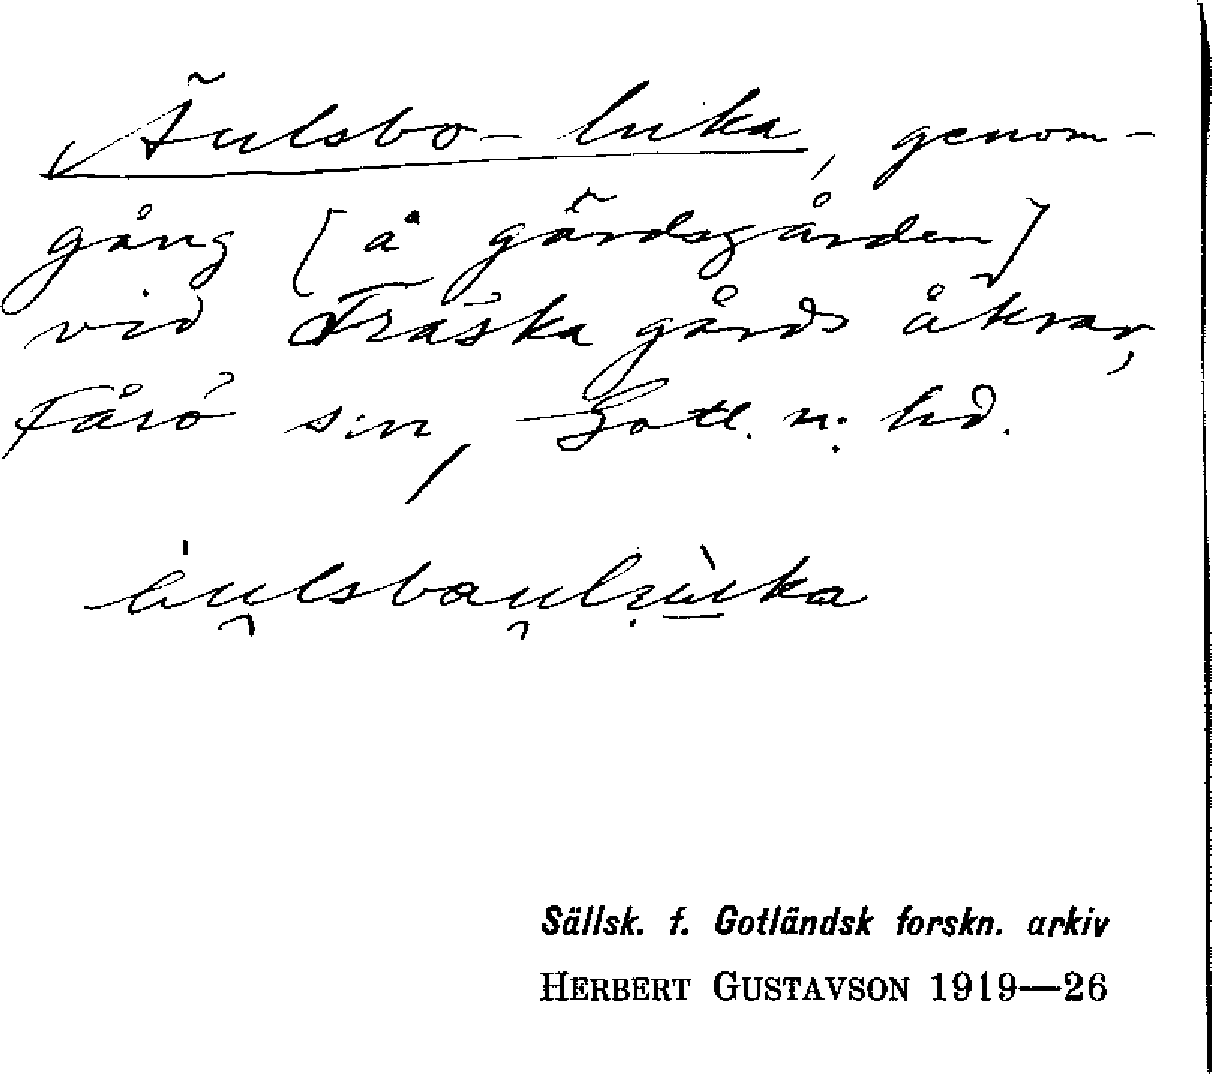 Äulsbo-luka, genom-
gång [å gärdsgården]
vid Träska gårds åkrar,
Fårö sn, Gotl. n. hd.
äulsbaulùka
Sällsk. f. Gotländsk forskn. arkiv
HERBERT GUSTAVSON 1919—26